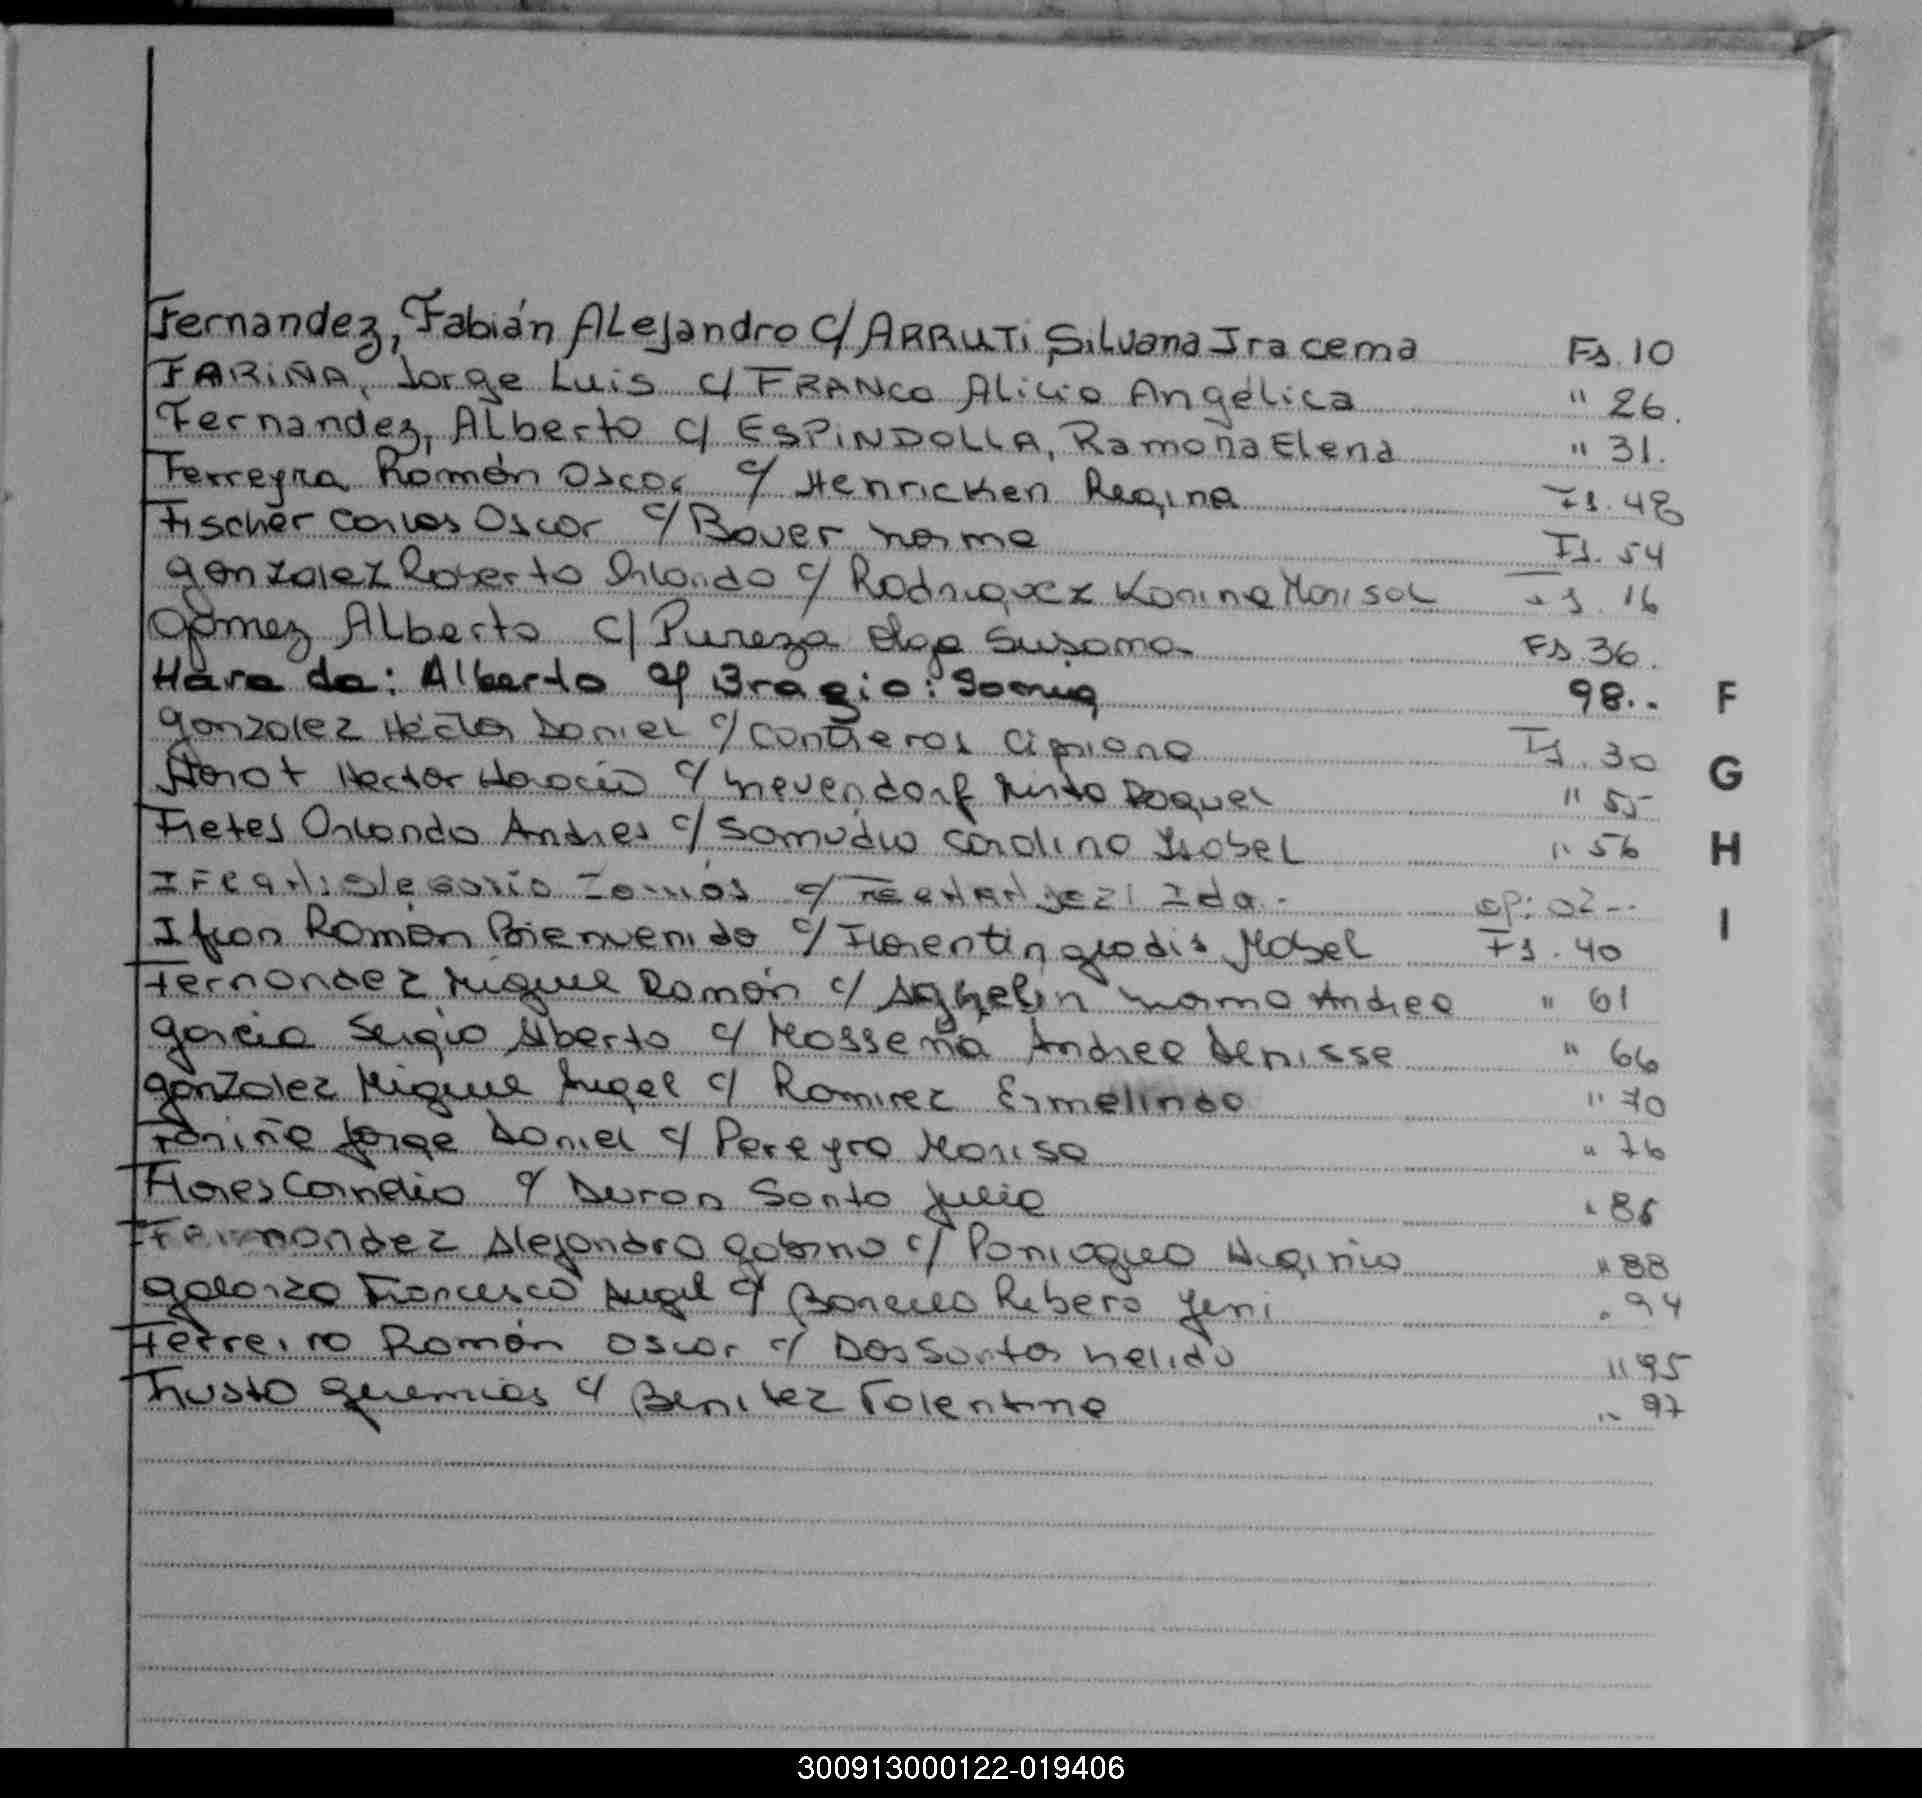 Fernandez, Fabián Alejandro c/ ARRUTi Silvana Iracema Fs. 10
FARIÑA, Jorge Luis c/ FRANCO Alicia Angélica " 26.
Fernandez, Alberto c/ ESPiNDOLLA, Ramona Elena " 31.
Ferreyra Román Oscar c/ Henricken Regina Fs. 48
Fischer Carlos Oscar c/ Bauer norma Fs. 54
gonzalez Roberto Orlando c/ Rodriguez Karina Marisol Fs. 16
Gómez Alberto c/ Pureza Olga Susana Fs 36.
Alberto c/ 98..
gonzalez Héctor Daniel c/ Contreras Cipriana Fs. 30
Hector Horacio c/ Mirta Raquel " 55
Fretes Orlando Andres c/ Samudio Carolina Isabel " 56
c/ Ida. 02
Ifran Román Bienvenido c/ Florentin gladis Mabel Fs. 40
Fernandez Miguel Ramón c/ norma Andrea " 61
garcia Sergio Alberto c/ Andrea Denisse " 66
gonzalez Miguel Angel c/ Ramirez Ermelinda " 70
Fariña Jorge Daniel c/ Pereyra Marisa " 76
Flores Cornelio c/ Duron Santa Julia " 86
Fernandez Alejandro gabino c/ Paniagua Higinia " 88
Francesco Angel c/ Ribero Yeni " 94
Ferreira Román Oscar c/ Dos Santos nelida " 95
geremias c/ Benitez Tolentina " 97
F
G
H
I
300913000122-019406